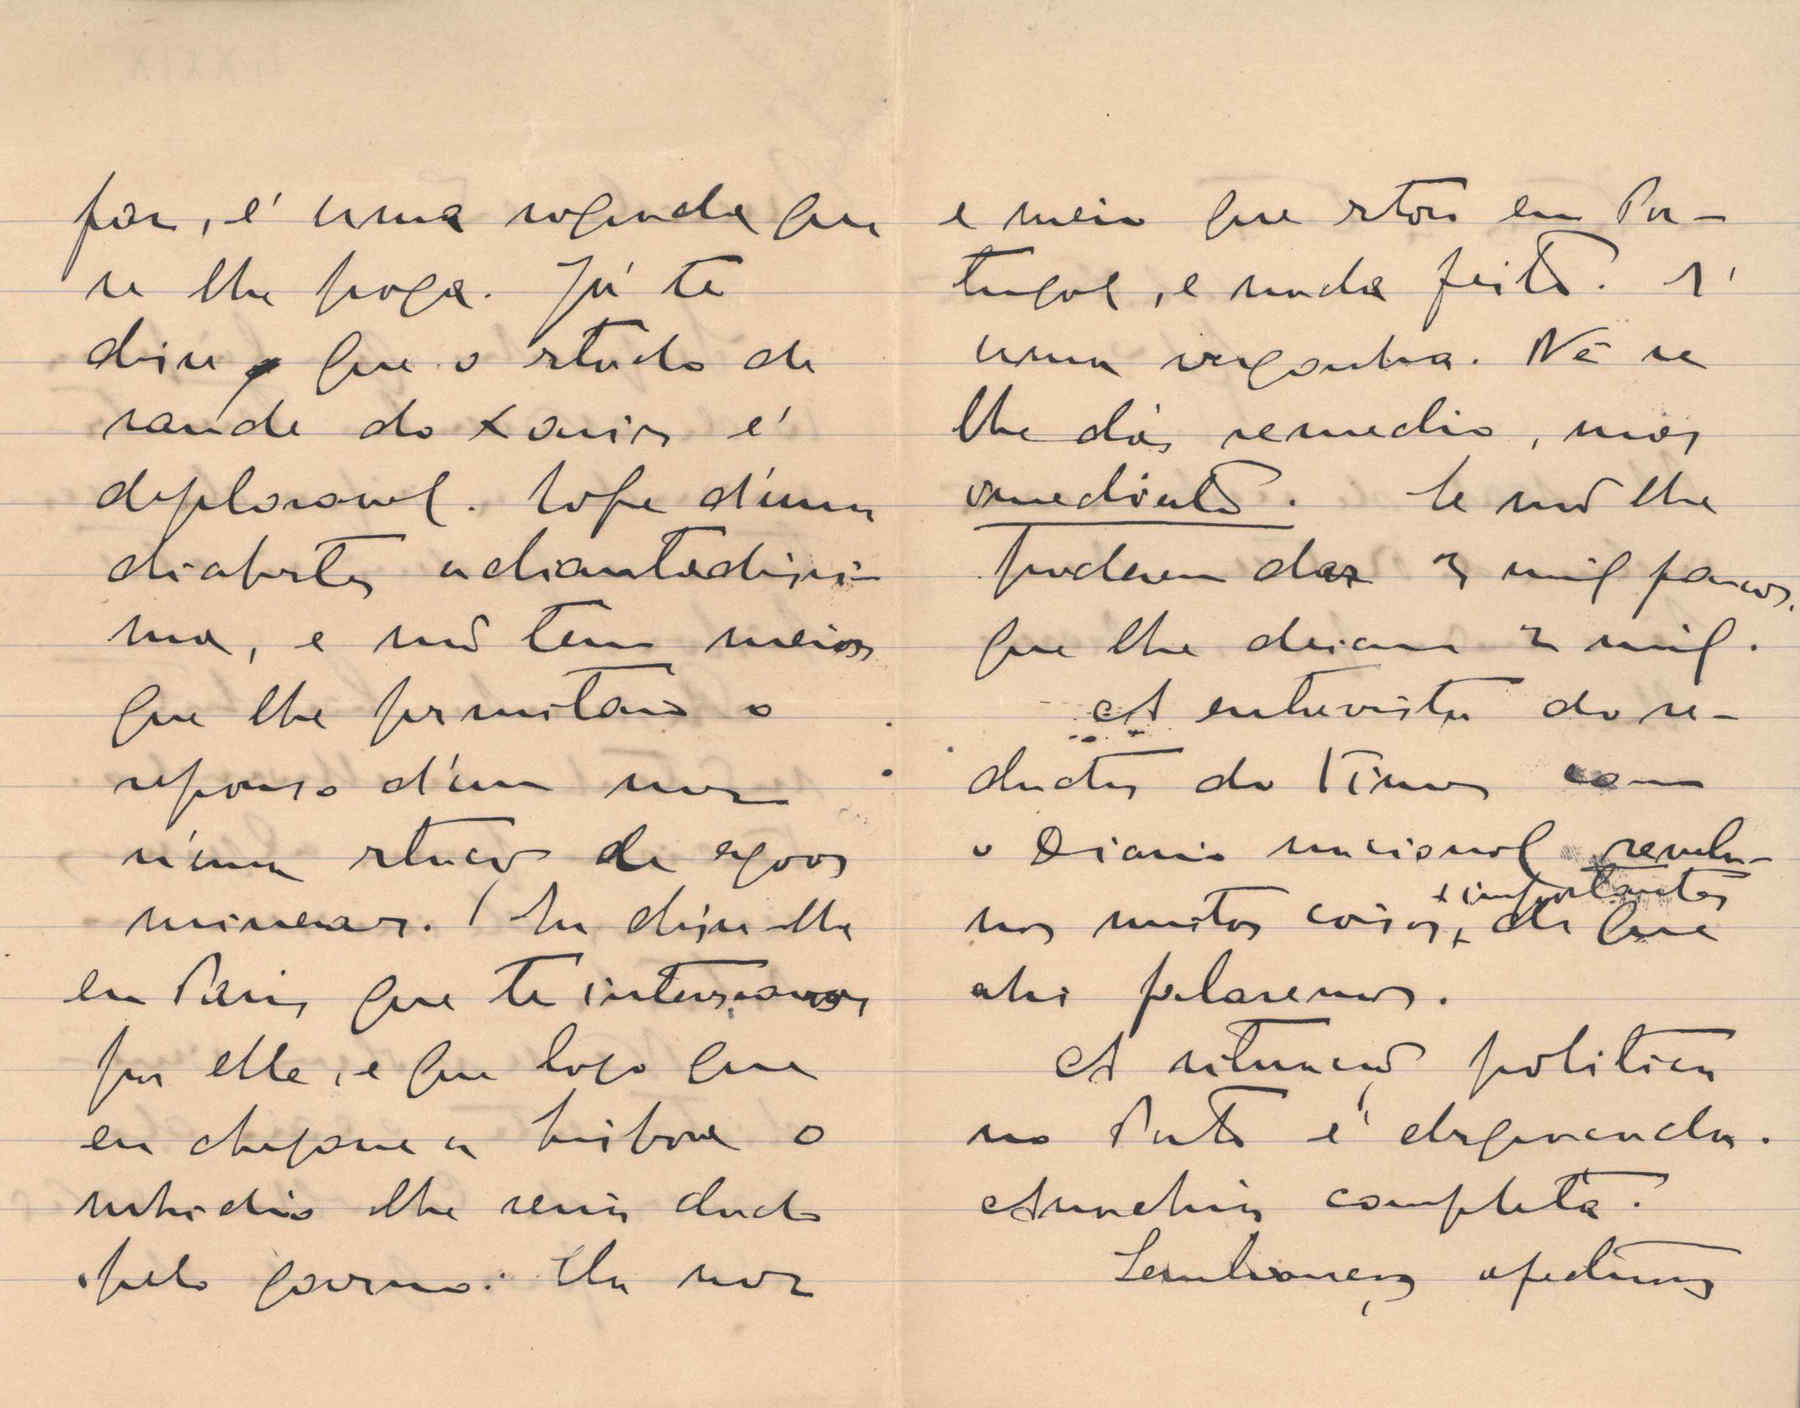 fôr, é uma segunda que
se lhe prega. Já te
disse que o estado de
saude do Xavier é
deploravel. Sofre d'uma
diabetes adiantadissi-
ma, e não tem meios
que lhe permitam o
repouso d'um mez
n'uma estação de agoas
mineraes. Eu disse-lhe
em Paris que te interessavas
por elle, e que logo que
eu chegasse a Lisboa o
subsidio lhe seria dado
pelo governo. Um mez
e meio que estou em Por-
tugal, e nada feito. É
uma vergonha. Vê se
lhe dás remedio, mas
immediato. Se não lhe
poderem dar 3 mil francos,
que lhe deiam 2 mil.
A entrevista do re-
dactor do Times com
o Diario nacional revela-
nos muitas coisas, importantes
de que
ahi falaremos.
A situação politica
no Porto é desgraçada.
Anarchia completa.
Lembranças afectuosas